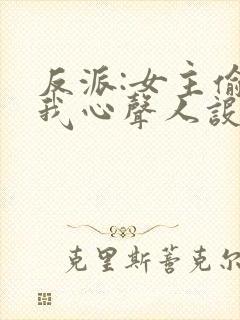 反派:女主偷
我心聲人設
克里斯蒼克尔